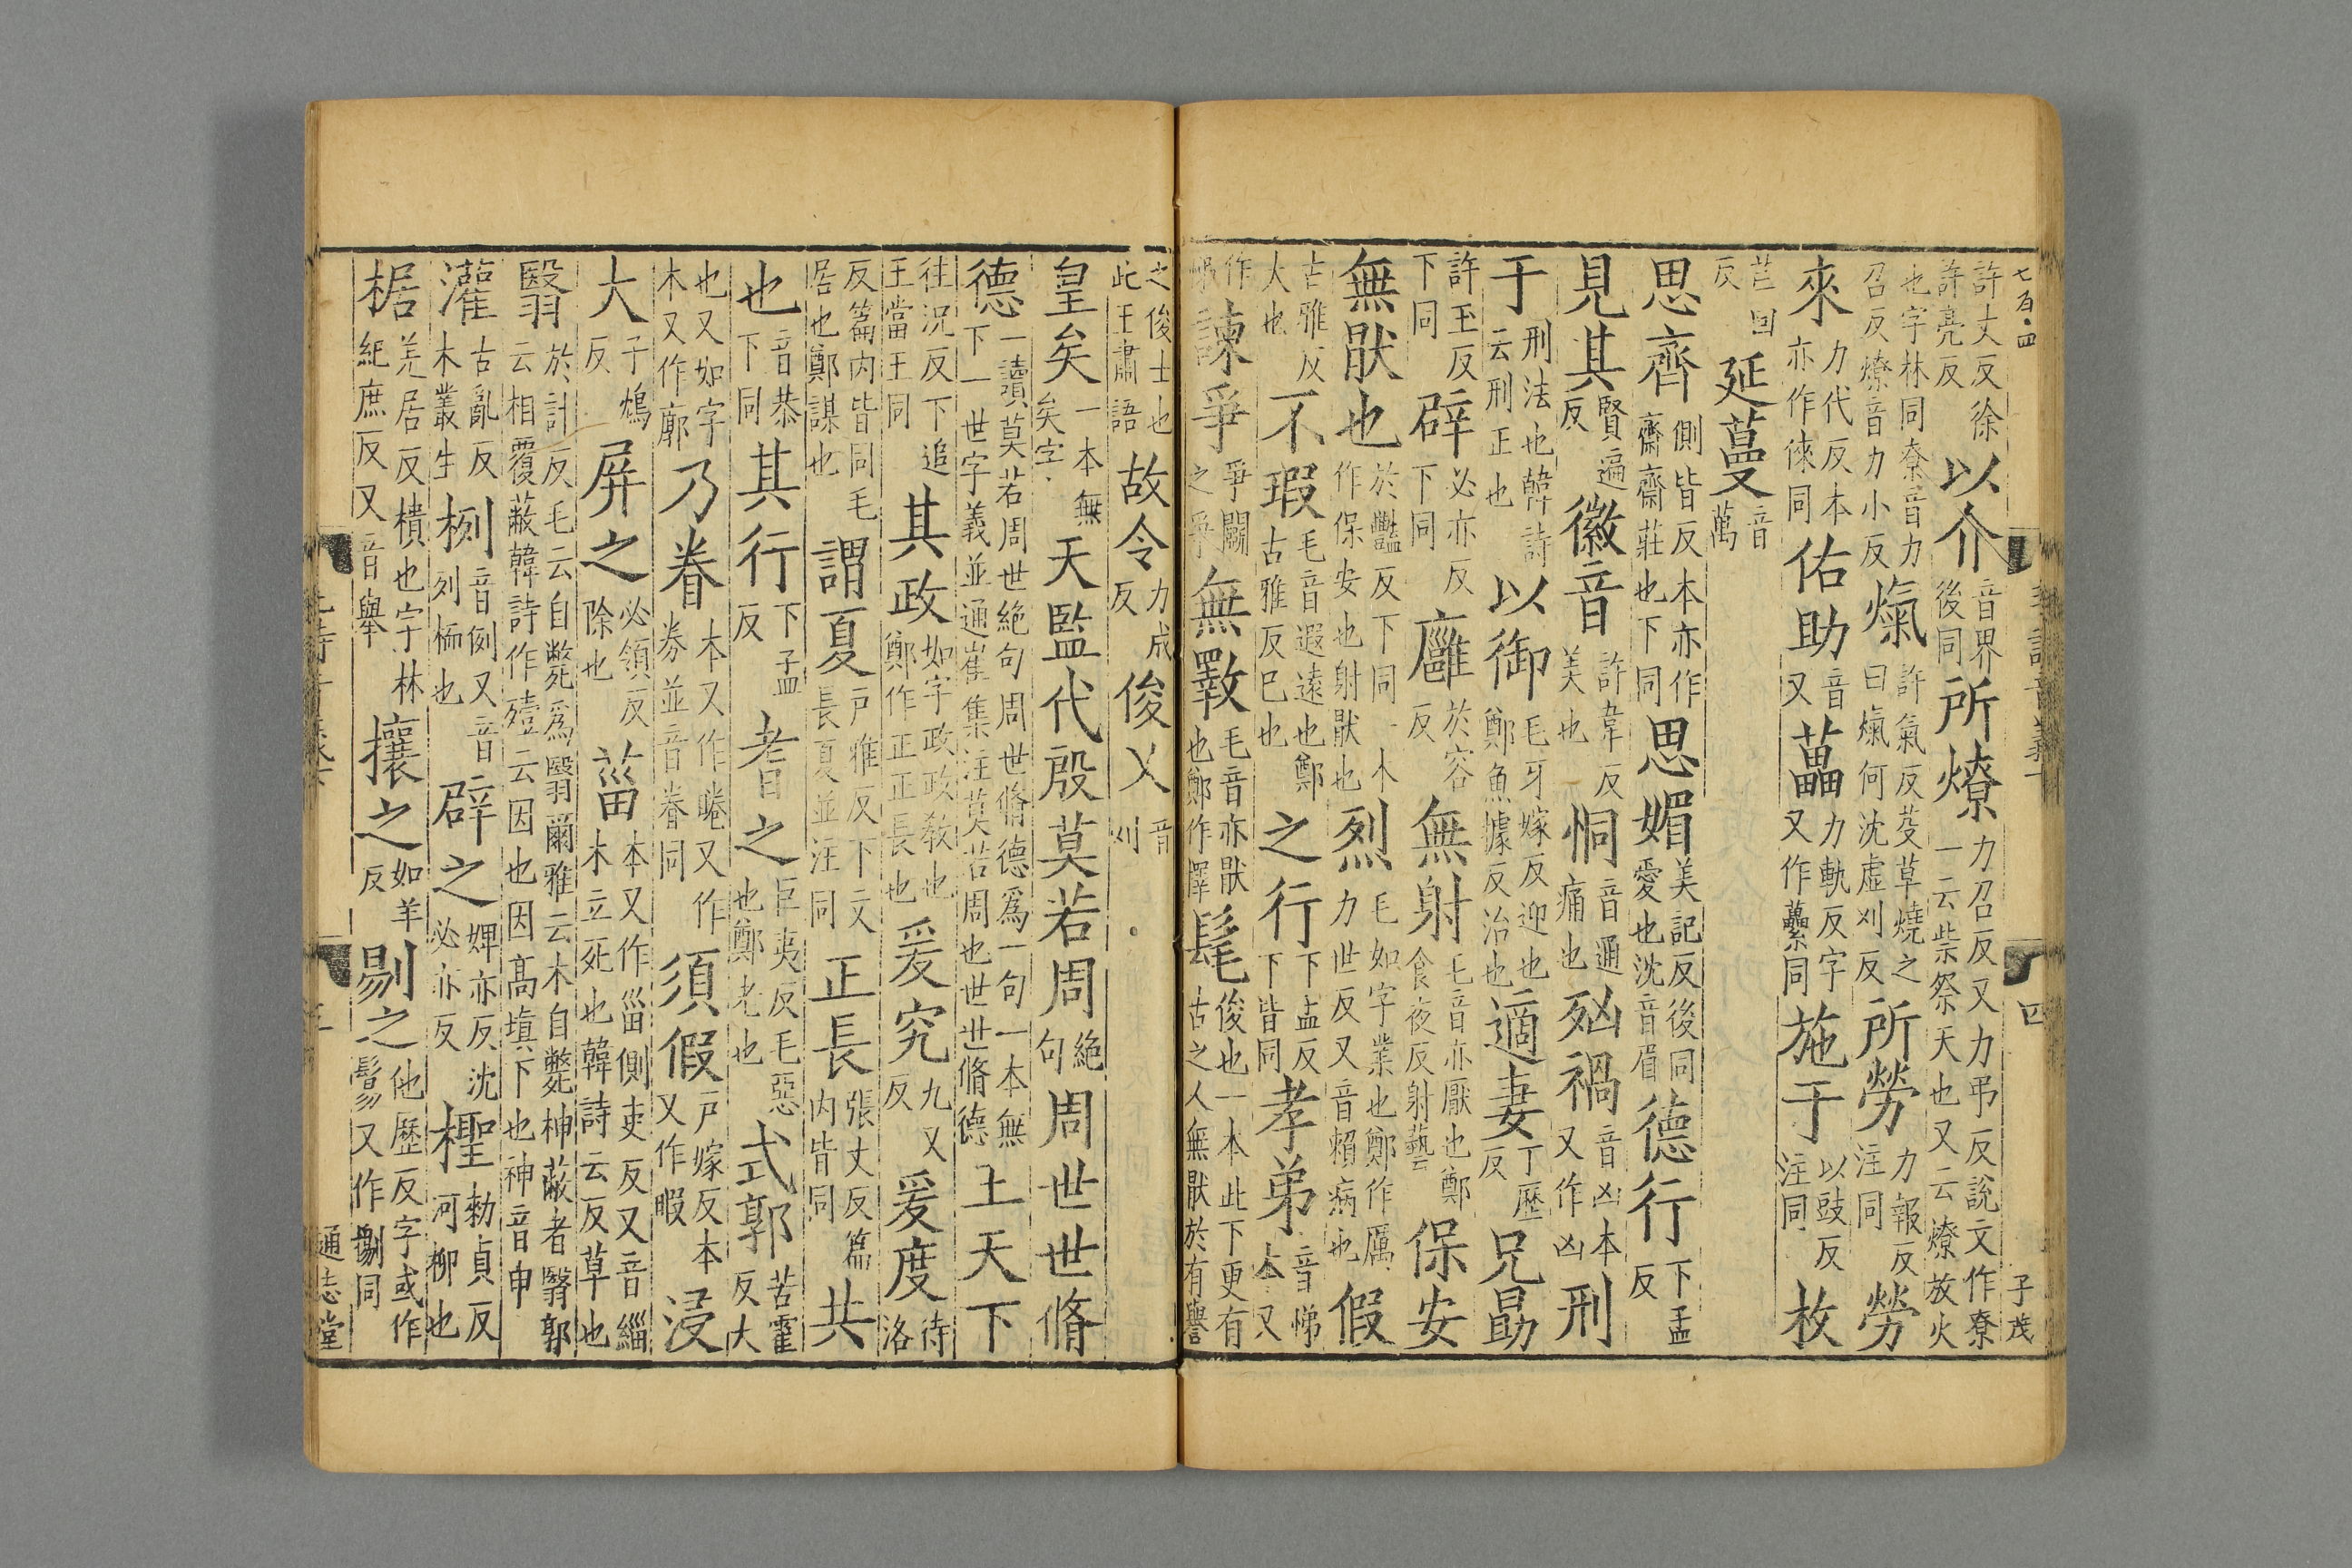 七百四 子茂
許丈反徐許亮反以介音界後同所燎力召反又力弔反説文作尞一云柴祭天也又云燎放火
也字林同尞音力召反燎音力小反熂許氣反芟草燒之曰熂何沈虛刈反所勞力報反注同勞
來力代反本亦作徠同佑助音又藟力軌反字又作蘽同施于以豉反注同枚
芒回反延蔓音萬
思齊側皆反本亦作齋齋莊也下同思媚美記反後同愛也沈音眉德行下孟反
見其賢遍反徽音許韋反美也恫音通痛也𣧑禍音凶本又作凶刑
于刑法也韓詩云刑正也以御毛牙嫁反迎也鄭魚據反治也適妻丁歷反兄勗
許玉反下同辟必亦反下同廱於容反無射毛音亦厭也鄭食夜反射藝保安
無猒也於豔反下同一本作保安也射猒也烈毛如字業也鄭作厲力世反又音賴病也假
古雅反大也不瑕毛音遐遠也鄭古雅反巳也之行下孟反下皆同孝弟音悌本又
作諫爭爭鬭之爭無斁毛音亦猒也鄭作擇髦俊也一本此下更有古之人無猒於有譽
毛詩音義下 四
之俊士也此王肅語故令力成反俊乂音刈
皇矣一本無矣字天監代殷莫若周絕句周世世脩
德一讀莫若周世絕句周世脩德為一句一本無下一世字義並通崔集注莫若周也世世脩德上天下
往況反下追王當王同其政如字政政教也鄭作正正長也爰究九又反爰度待洛
反篇內皆同毛居也鄭謀也謂夏戶雅反下文長夏並注同正長張丈反篇內皆同共
也音恭下同其行下孟反耆之巨夷反毛惡也鄭老也式郭苦霍反大
也又如字本又作廓乃眷本又作睠又作𢍏並音眷同須假戶嫁反本又作暇浸
大子鴆反屏之必領反除也菑本又作甾側吏反又音緇木立死也韓詩云反草也
翳於計反毛云自斃為翳爾雅云木自斃柛蔽者翳郭云相覆蔽韓詩作殪云因也因高填下也神音申
灌古亂反木叢生栵音例又音列栭也辟之婢亦反沈必亦反檉勑貞反河柳也
椐羌居反樻也字林紀庶反又音舉攘之如羊反剔之他歷反字或作鬄又作𠞊同
通志堂